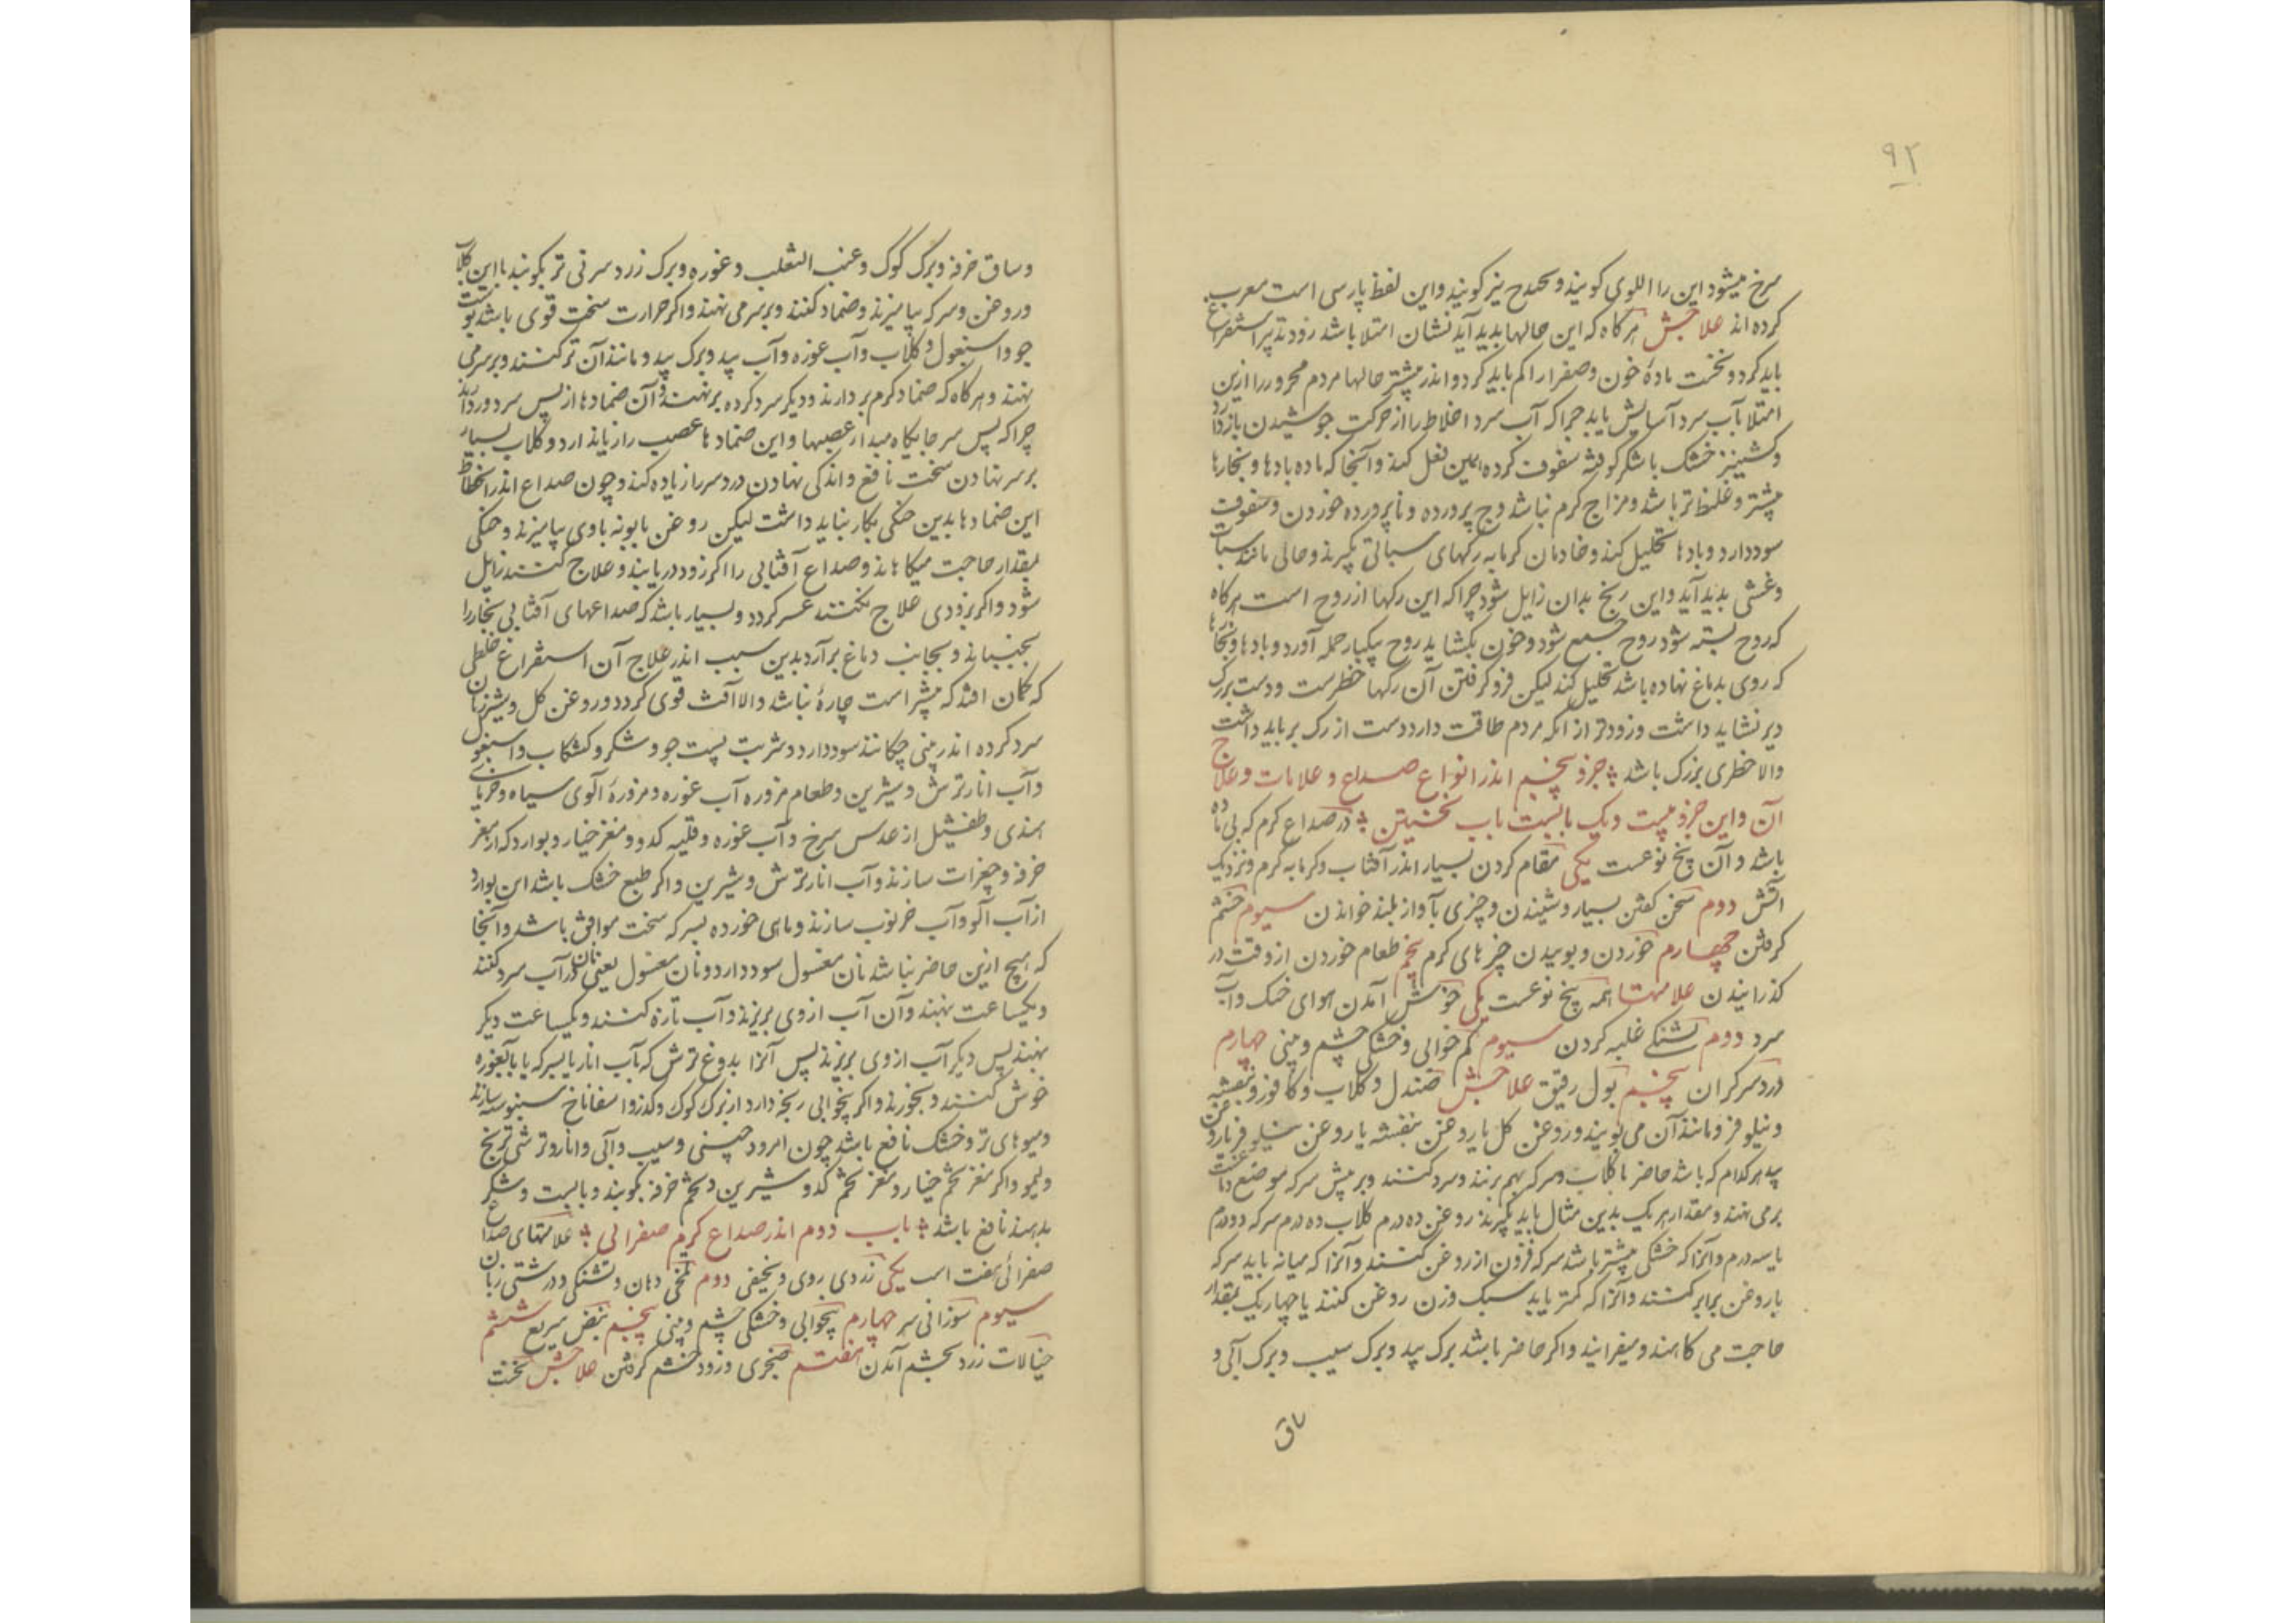 ۹۲
سرخ میشود این را اللوی کویند و نیز کویند و این لفظ پارسی است معرب
کرده اند علاجش هرکاه که این حالها بدید آید نشان امتلا باشد زود تدبیر استفراغ
باید کرد و نخست مادهٔ خون و صفرا را کم باید کرد و اندر بیشتر حالها مردم محرور را ازین
امتلا بآب سرد آسایش باید چرا که آب سرد اخلاط را از حرکت جوشیدن باز دارد
و کشنیز خشک با شکر کوفته سفوف کرده همین فعل کند و آنجا که ماده بادها و بخارها
بیشتر و غلیظ تر باشد و مزاج کرم نباشد وج پرورده و ناپرورده خوردن و سفوف
سود دارد و بادها تحلیل کند و خادمان کرمابه رکهای سباتی بکیرند و حالی مانند سبات
و غشی بدید آید و این رنج بدان زایل شود چرا که این رکها از روح است هرکاه
که روح بسته شود روح جمع شود و خون بکشاید روح بیکبار حمله آورد و بادها و بخارها
که روی بدماغ نهاده باشد تحلیل کند لیکن فرو کرفتن آن رکها خطرست و دست بر رک
دیر نشاید داشت و زودتر از انکه مردم طاقت دارد دست از رک بر باید داشت
والا خطری بزرک باشد جزو پنجم اندر انواع صداع و علامات و علاج
آن و این جزو بیست و یک بابست باب نخستین در صداع کرم که بی ماده
باشد و آن پنج نوعست یکی مقام کردن بسیار اندر آفتاب و کرمابه کرم و نزدیک
آتش دوم سخن کفتن بسیار و شنیدن و چیزی بآواز بلند خواندن سیوم خشم
کرفتن چهارم خوردن و بوییدن چیزهای کرم پنجم طعام خوردن از وقت در
کذرانیدن علامتها همه پنج نوعست یکی خوش آمدن هوای خنک و آب
سرد دوم تشنکی غلبه کردن سیوم کم خوابی و خشکی چشم و بینی چهارم
درد سر کران پنجم بول رقیق علاجش صندل و کلاب و کافور و بنفشه
و نیلوفر و مانند آن می بویند و روغن کل یا روغن بنفشه یا روغن نیلوفر یا روغن
بید هر کدام که باشد حاضر با کلاب و سرکه بهم برزنند و سرد کنند و بر پیش سر که موضع دماغست
برمی نهند و مقدار هریک بدین مثال باید بکیرند روغن ده درم کلاب ده درم سرکه دو درم
یا سه درم و آنرا که خشکی بیشتر باشد سرکه فزون از روغن کنند و آنرا که میانه باید سرکه
با روغن برابر کنند و آنرا که کمتر باید سبک وزن روغن کنند یا چهار یک بمقدار
حاجت می کاهند و میفزایند و اکر حاضر باشد برک بید و برک سیب و برک آبی و
ساق
و ساق خرفه و برک کوک و عنب الثعلب و غوره و برک زرد و سرنی تر بکوبند با این کلاب
و روغن و سرکه بیامیزند و ضماد کنند و بر سر می نهند و اکر حرارت سخت قوی باشد پوست
جو و اسبغول و کلاب و آب غوره و آب بید و برک بید و مانند آن تر کنند و بر سر می
نهند و هرکاه که ضماد کرم بردارند و دیکر سرد کرده برنهند و آن ضمادها از پس سر دور دارند
چرا که پس سر جایکاه مبدا عصبهاست و این ضمادها عصب را زیان دارد و کلاب بسیار
بر سر نهادن سخت نافع و اندکی نهادن درد سر را زیاده کند و چون صداع اندر انحطاط
این ضمادها بدین خنکی بکار نباید داشت لیکن روغن بابونه باوی بیامیزند و خنکی
بمقدار حاجت میکاهند و صداع آفتابی را اکر زود دریابند و علاج کنند زایل
شود و اکر بزودی علاج نکنند عسر کردد و بسیار باشد که صداعهای آفتابی بخار را
بجنباند و بجانب دماغ برآرد بدین سبب اندر علاج آن استفراغ خلطی
که کمان افتد که بیشتر است چارهٔ نباشد والا آفت قوی کردد و روغن کل و شیر زنان
سرد کرده اندر بینی چکانند سود دارد و شربت پست جو و شکر و کشکاب و اسبغول
و آب انار ترش و شیرین و طعام مزوره آب غوره و مزورهٔ آلوی سیاه و خرمای
هندی و طفشیل از عدس سرخ و آب غوره و قلیه کدو و مغز خیار و بوارد که از مغز
خرفه و چغرات سازند و آب انار ترش و شیرین و اکر طبع خشک باشد این بوارد
از آب آلو و آب خرنوب سازند و ماهی خورده بسرکه سخت موافق باشد و آنجا
که هیچ ازین حاضر نباشد نان مغسول سود دارد و نان مغسول یعنی نان در آب سرد کنند
و یکساعت نهند و آن آب از وی بریزند و آب تازه کنند و یکساعت دیکر
نهند پس دیکر آب از وی بریزند پس آنرا بدوغ ترش که بآب انار یا بسرکه یا بآبغوره
خوش کنند و بخورند و اکر بیخوابی رنجه دارد از برک کوک و کدو و اسفاناخ سبوسه سازند
و میوهای تر و خشک نافع باشد چون امرود چینی و سیب و آبی و انار و ترشی ترنج
و لیمو و اکر مغز تخم خیار و مغز تخم کدو شیرین و تخم خرفه بکوبند و با پست و شکر
بدهند نافع باشد باب دوم اندر صداع کرم صفرائی علامتهای صداع
صفرائی هفت است یکی زردی روی و نحیفی دوم تلخی دهان و تشنکی و درشتی زبان
سیوم سوزانی سر چهارم بیخوابی و خشکی چشم و بینی پنجم نبض سریع ششم
خیالات زرد بچشم آمدن هفتم ضجری و زود خشم کرفتن علاجش نخست